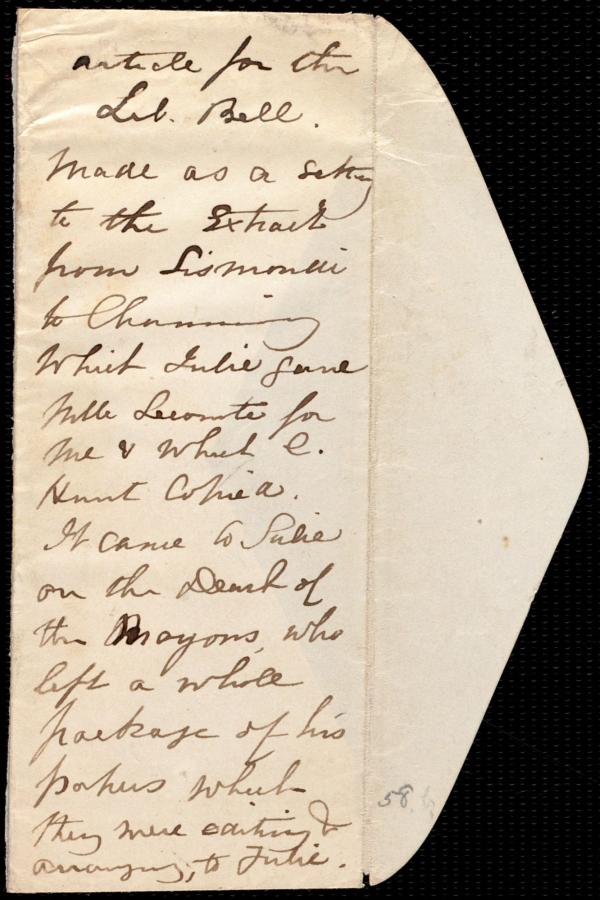 article for the
Lib. Bell.
Made as a setting
to the Extract
from Sismondi
to Channing
Which Julie gave
Mlle Lecomte for
me & which C.
Hunt Copied.
It came to Julie
on the Death of
the Mayors, who
left a whole
package of his
papers which
they were editing &
arranging, to Julie.
58.